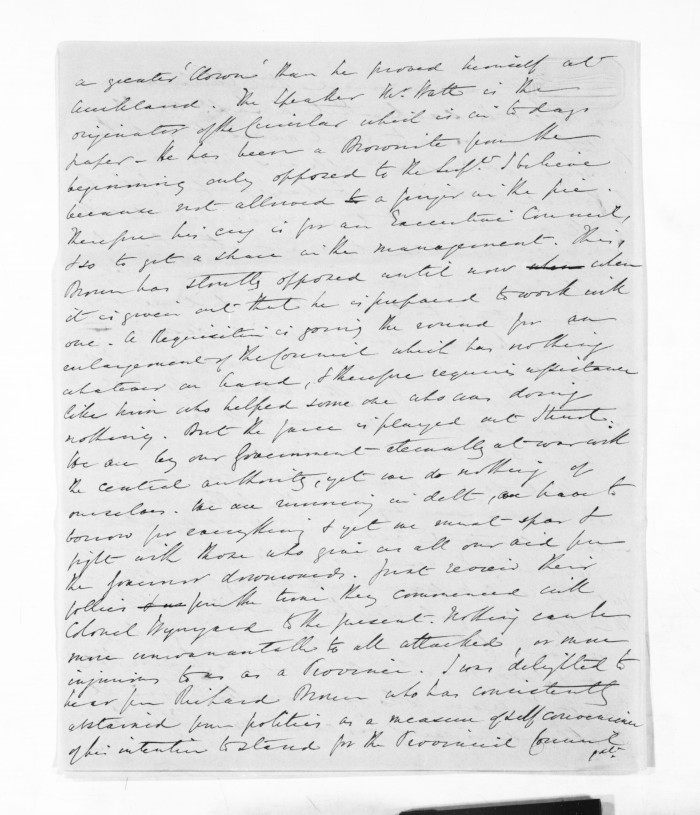 a greater 'Clown' than he proved himself at
Auckland. The Speaker Mr. Watt is the
originator of the Circular which is in to days
paper - He has been a Brownite from the
beginning only opposed to the Supt. I believe
because not allowed to a finger in the pie.
Therefore his cry is for an Executive Council,
& so to get a share in the management. This,
Brown has stoutly opposed until now when when
it is given out that he is prepared to work with
one. A Requisition is going the round for an
enlargement of the Council which has nothing
whatever on hand, & therefore requires assistance
like him who helped some one who was doing
nothing. But the farce is played out I trust.
We are by our Government eternally at war with
the central authority, yet we do nothing of
ourselves. We are running in debt, have to
borrow for everything & yet we must spar &
fight with those who give us all our aid from
the Governor downwards. Just review their
follies from the time they commenced with
Colonel Wynyard to the present. Nothing can be
more unwarrantable to all attacked, or more
injurious to us as a Province. I was delighted to
hear from Richard Brown who has consistently
abstained from politics as a measure of self convenience
of his intention to stand for the Provincial Council